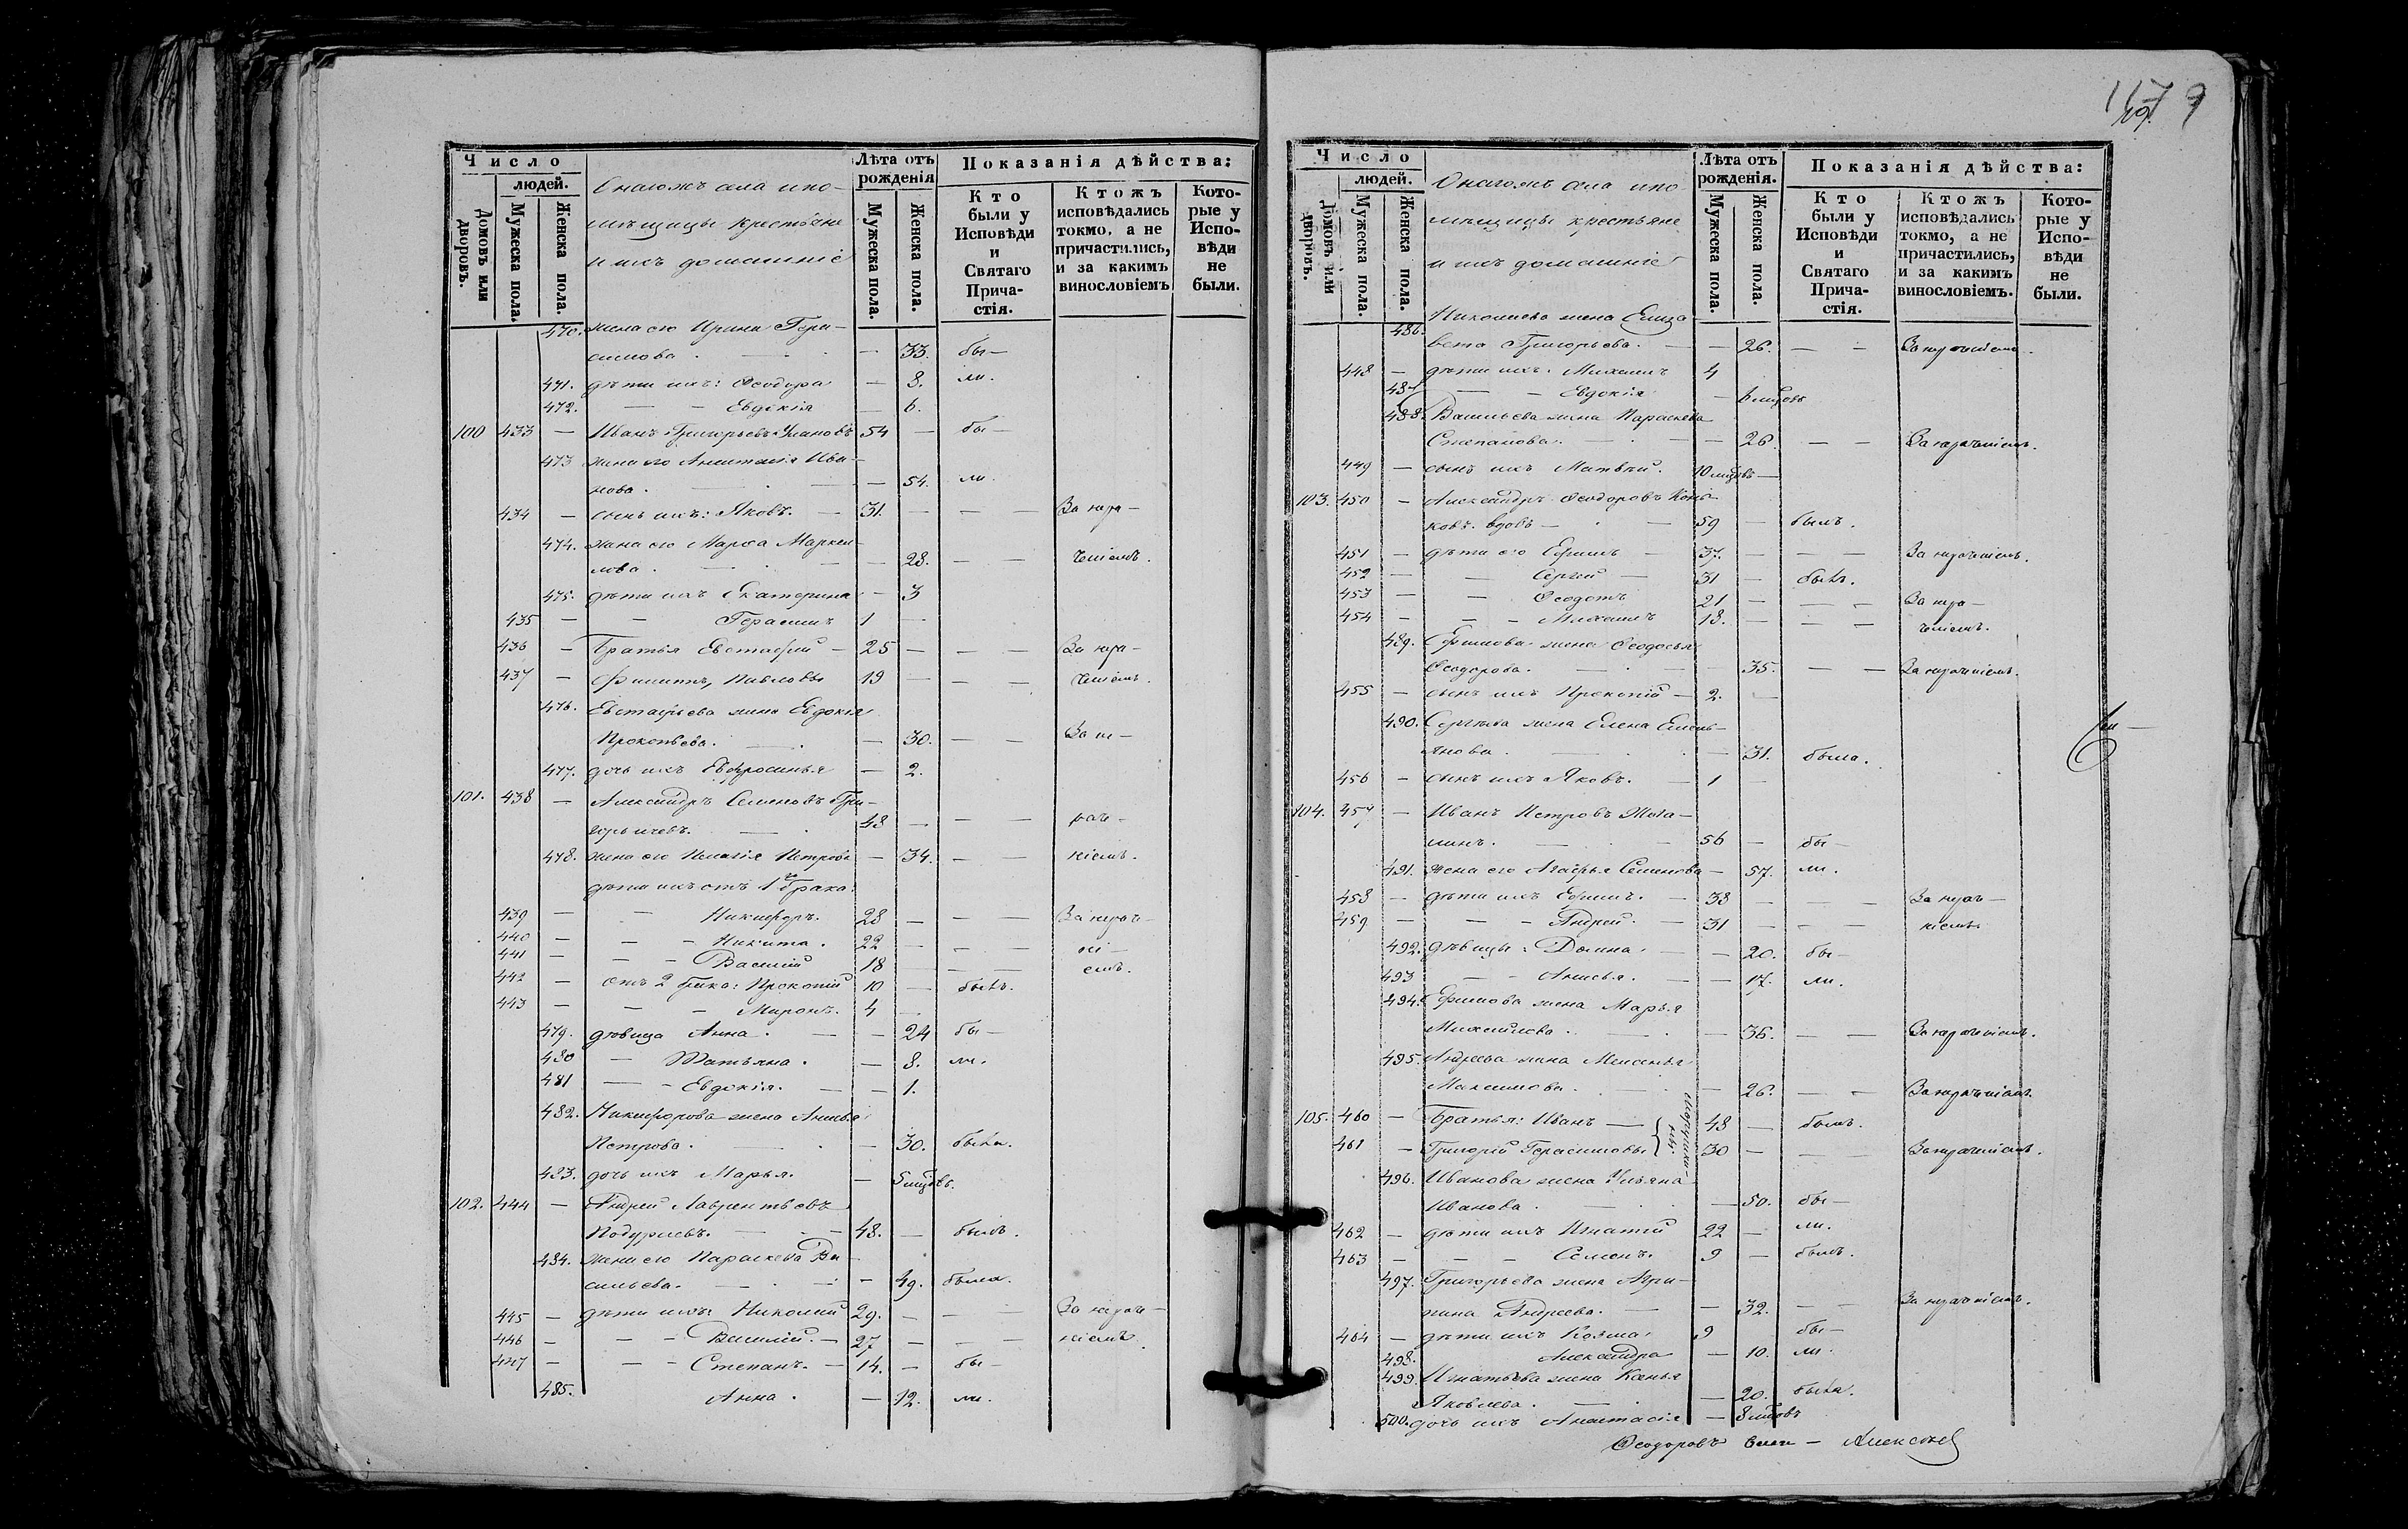 Число
людей.
Домовъ или дворовъ.
Мужеска пола.
Женска пола.
Онагожъ села и по-
мѣщицы крестьяне
и ихъ домашніе
Лѣта отъ рожденія
Мужеска пола.
Женска пола.
Показанія дѣйства:
Кто были у Исповѣди и Святаго Прича-стія.
Ктожъ исповѣдались токмо, а не причастились, и за какимъ винословіемъ
Кото-рые у Испо-вѣди не были.
470. жена его Ирина Гера-
симова. — 33. бы-
471. дѣти ихъ: Ѳеодора — 8. ли.
472. — — Евдокія — 6.
100 433 — Иванъ Григорьевъ 54 — бы-
473 жена его Анастасія Ива-
нова. — 54. ли.
434 — сынъ ихъ: Яковъ. — 31. — — — За нера-
474. жена его Марѳа Маркел-
лова. — 28. — — ченіемъ.
475. дѣти ихъ Екатерина — 3
435 — — Герасимъ 1 —
436 — Братья Евстафій — 25 — — — За нера-
437 — Филиппъ, Павловы 19 — — — ченіемъ.
476. Евстафьева жена Евдокія
Прокопьева. — 30. — — За не-
477. дочь ихъ Евфросинья — 2.
101. 438 — Александръ Семеновъ Гри-
горьичевъ. — 48 — — — рач-
478. жена его Пелагія Петрова — 34. — — ніемъ.
дѣти ихъ отъ 1го брака:
439 — — Никифоръ. 28 — — — За нерач-
440 — — Никита. 22 — — — ні-
441 — — Василій 18 — — — емъ.
442 — отъ 2 брака: Прокопій 10 — былъ.
443 — — Миронъ. 4 —
479. дѣвица Анна. — — 24 бы-
480 — Татьяна. — 8. ли.
481 — — Евдокія. — — 1.
482. Никифорова жена Анисья
Петрова. — 30. была.
483. дочь ихъ Марья. — 5 мѣсяцевъ.
102. 444 — Андрей Лаврентьевъ
48. — былъ.
484. жена его Параскева Ва-
сильева. — 49. была.
445 — дѣти ихъ: Николай 29. — — — За нерач-
446 — — — Василій. — 27 — — — ніемъ.
447 — — — Степанъ. — 14. — бы-
485. Анна. — 12. ли.
Число
людей.
Домовъ или дворовъ.
Мужеска пола.
Женска пола.
Онагожъ села и по-
мѣщицы крестьяне
и ихъ домашніе
Лѣта отъ рожденія.
Мужеска пола.
Женска пола.
Показанія дѣйства:
Кто были у Исповѣди и Святаго Прича-стія.
Ктожъ исповѣдались токмо, а не причастились, и за какимъ винословіемъ.
Кото-рые у Испо-вѣди не были.
486. Николаева жена Елиза-
вета Григорьева. — — 26. — — За нераченіемъ.
448 — дѣти ихъ. Михаилъ 4
487 — — Евдокія — 6 мѣсяцевъ
488. Васильева жена Параскева
Степанова. — — 26. — — За нераченіемъ.
449 — сынъ ихъ Матвѣй. 10 мѣсяцевъ —
103. 450 — Александръ Ѳеодоровъ
вдовъ — 59 — былъ.
451 — дѣти его Ефимъ — 37. — — — За нераченіемъ.
452 — — Сергій — 31 — былъ.
453 — — Ѳеодотъ 21 — — — За нера-
454 — — — Михаилъ 18. — — — ченіемъ.
489. Ефимова жена Ѳеодосья
Ѳеодорова. — 35. — — За нераченіемъ.
455 — сынъ ихъ Прокопій — 2. —
490. Сергѣева жена Елена Емель-
янова. — 31. была.
456 — сынъ ихъ Яковъ. — 1 —
104. 457 — Иванъ Петровъ
56 — бы-
491. жена его Агафья Семенова — 57. ли.
458 — дѣти ихъ Ефимъ. — 38 — — — За нерач-
459 — — — Андрей. — 31 — — — ніемъ.
492. дѣвицы: Домна. — — 20. бы-
493 — — Анисья. — — 17. ли.
494. Ефимова жена Марья
Михайлова. — 36. — — За нераченіемъ.
495. Андреева жена Меланья
Максимова. — 26. — — За нераченіемъ.
105. 460 — Братья: Иванъ — 48 — былъ.
461 — Григорій Герасимовы 30 — — — За нераченіемъ.
496. Иванова жена Ульяна
Иванова. — 50. бы-
462 — дѣти ихъ Игнатій 22 — ли.
463 — — — Семенъ. 9 — былъ.
497. Григорьева жена Агри-
пина Андреева. — — 32. — — За нераченіемъ.
464 — дѣти ихъ Козма. 9 бы-
498. Александра — 10. ли.
499. Игнатьева жена Ксенья
Яковлева. — — 20. была.
500. дочь ихъ Анастасія — 8 мѣсяцевъ
Алексѣй